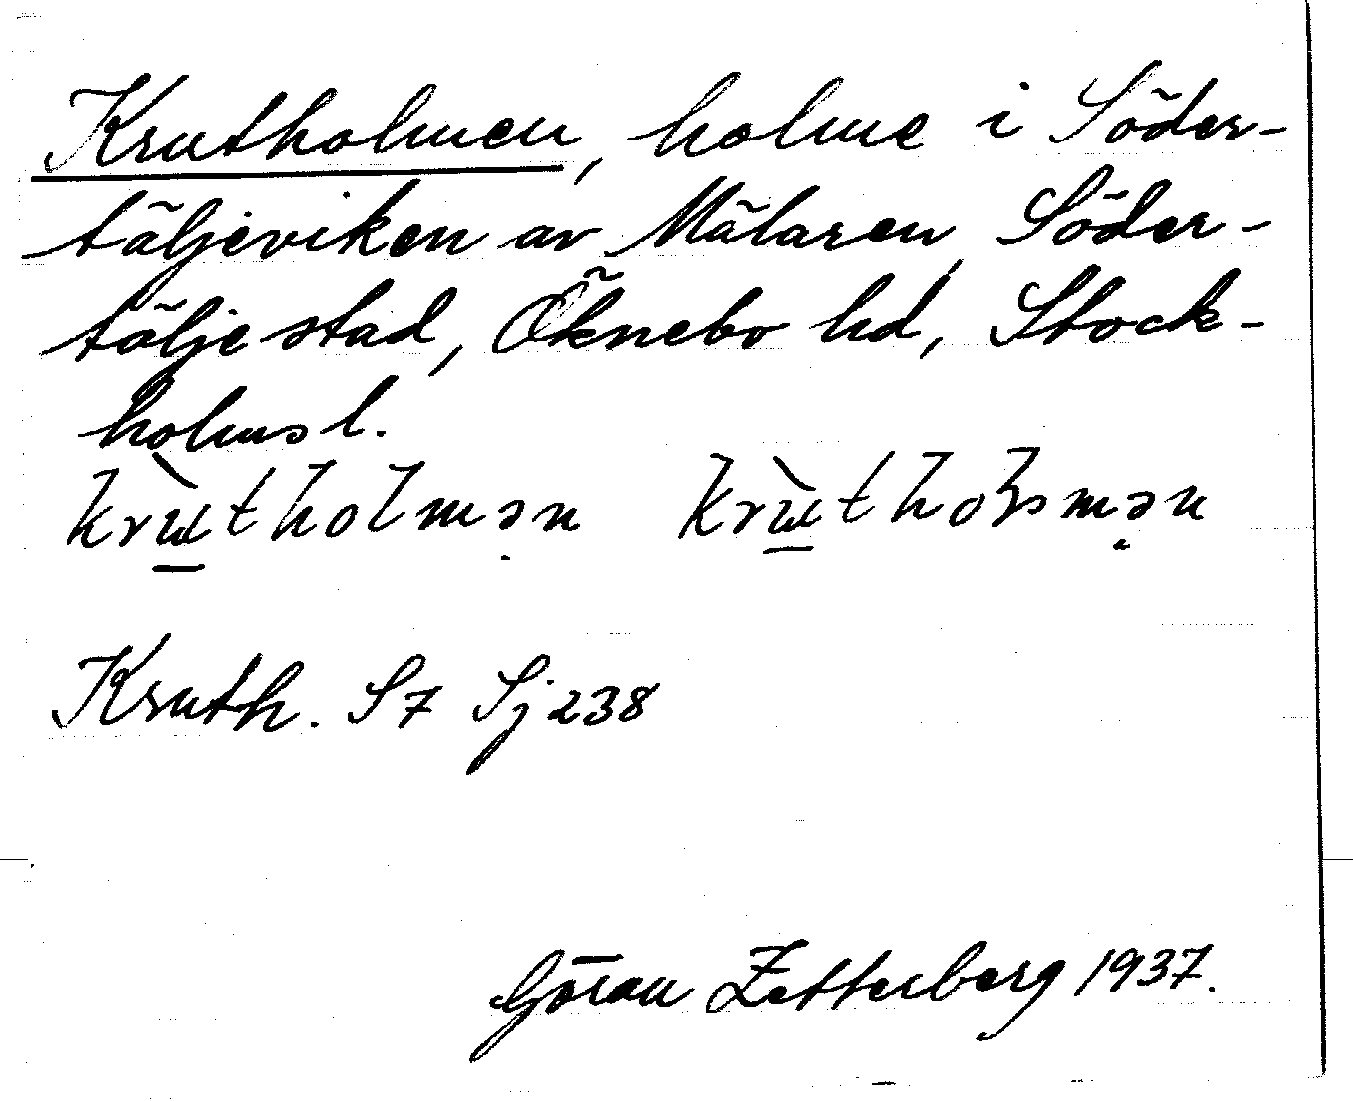 Krutholmen, holme i Söder-
täljeviken av Mälaren, Söder-
tälje stad, Öknebo hd, Stock-
holms l.
krùtholmən krùthoɫmən
Kruth. S7 Sj 238
Göran Zetterberg 1937.